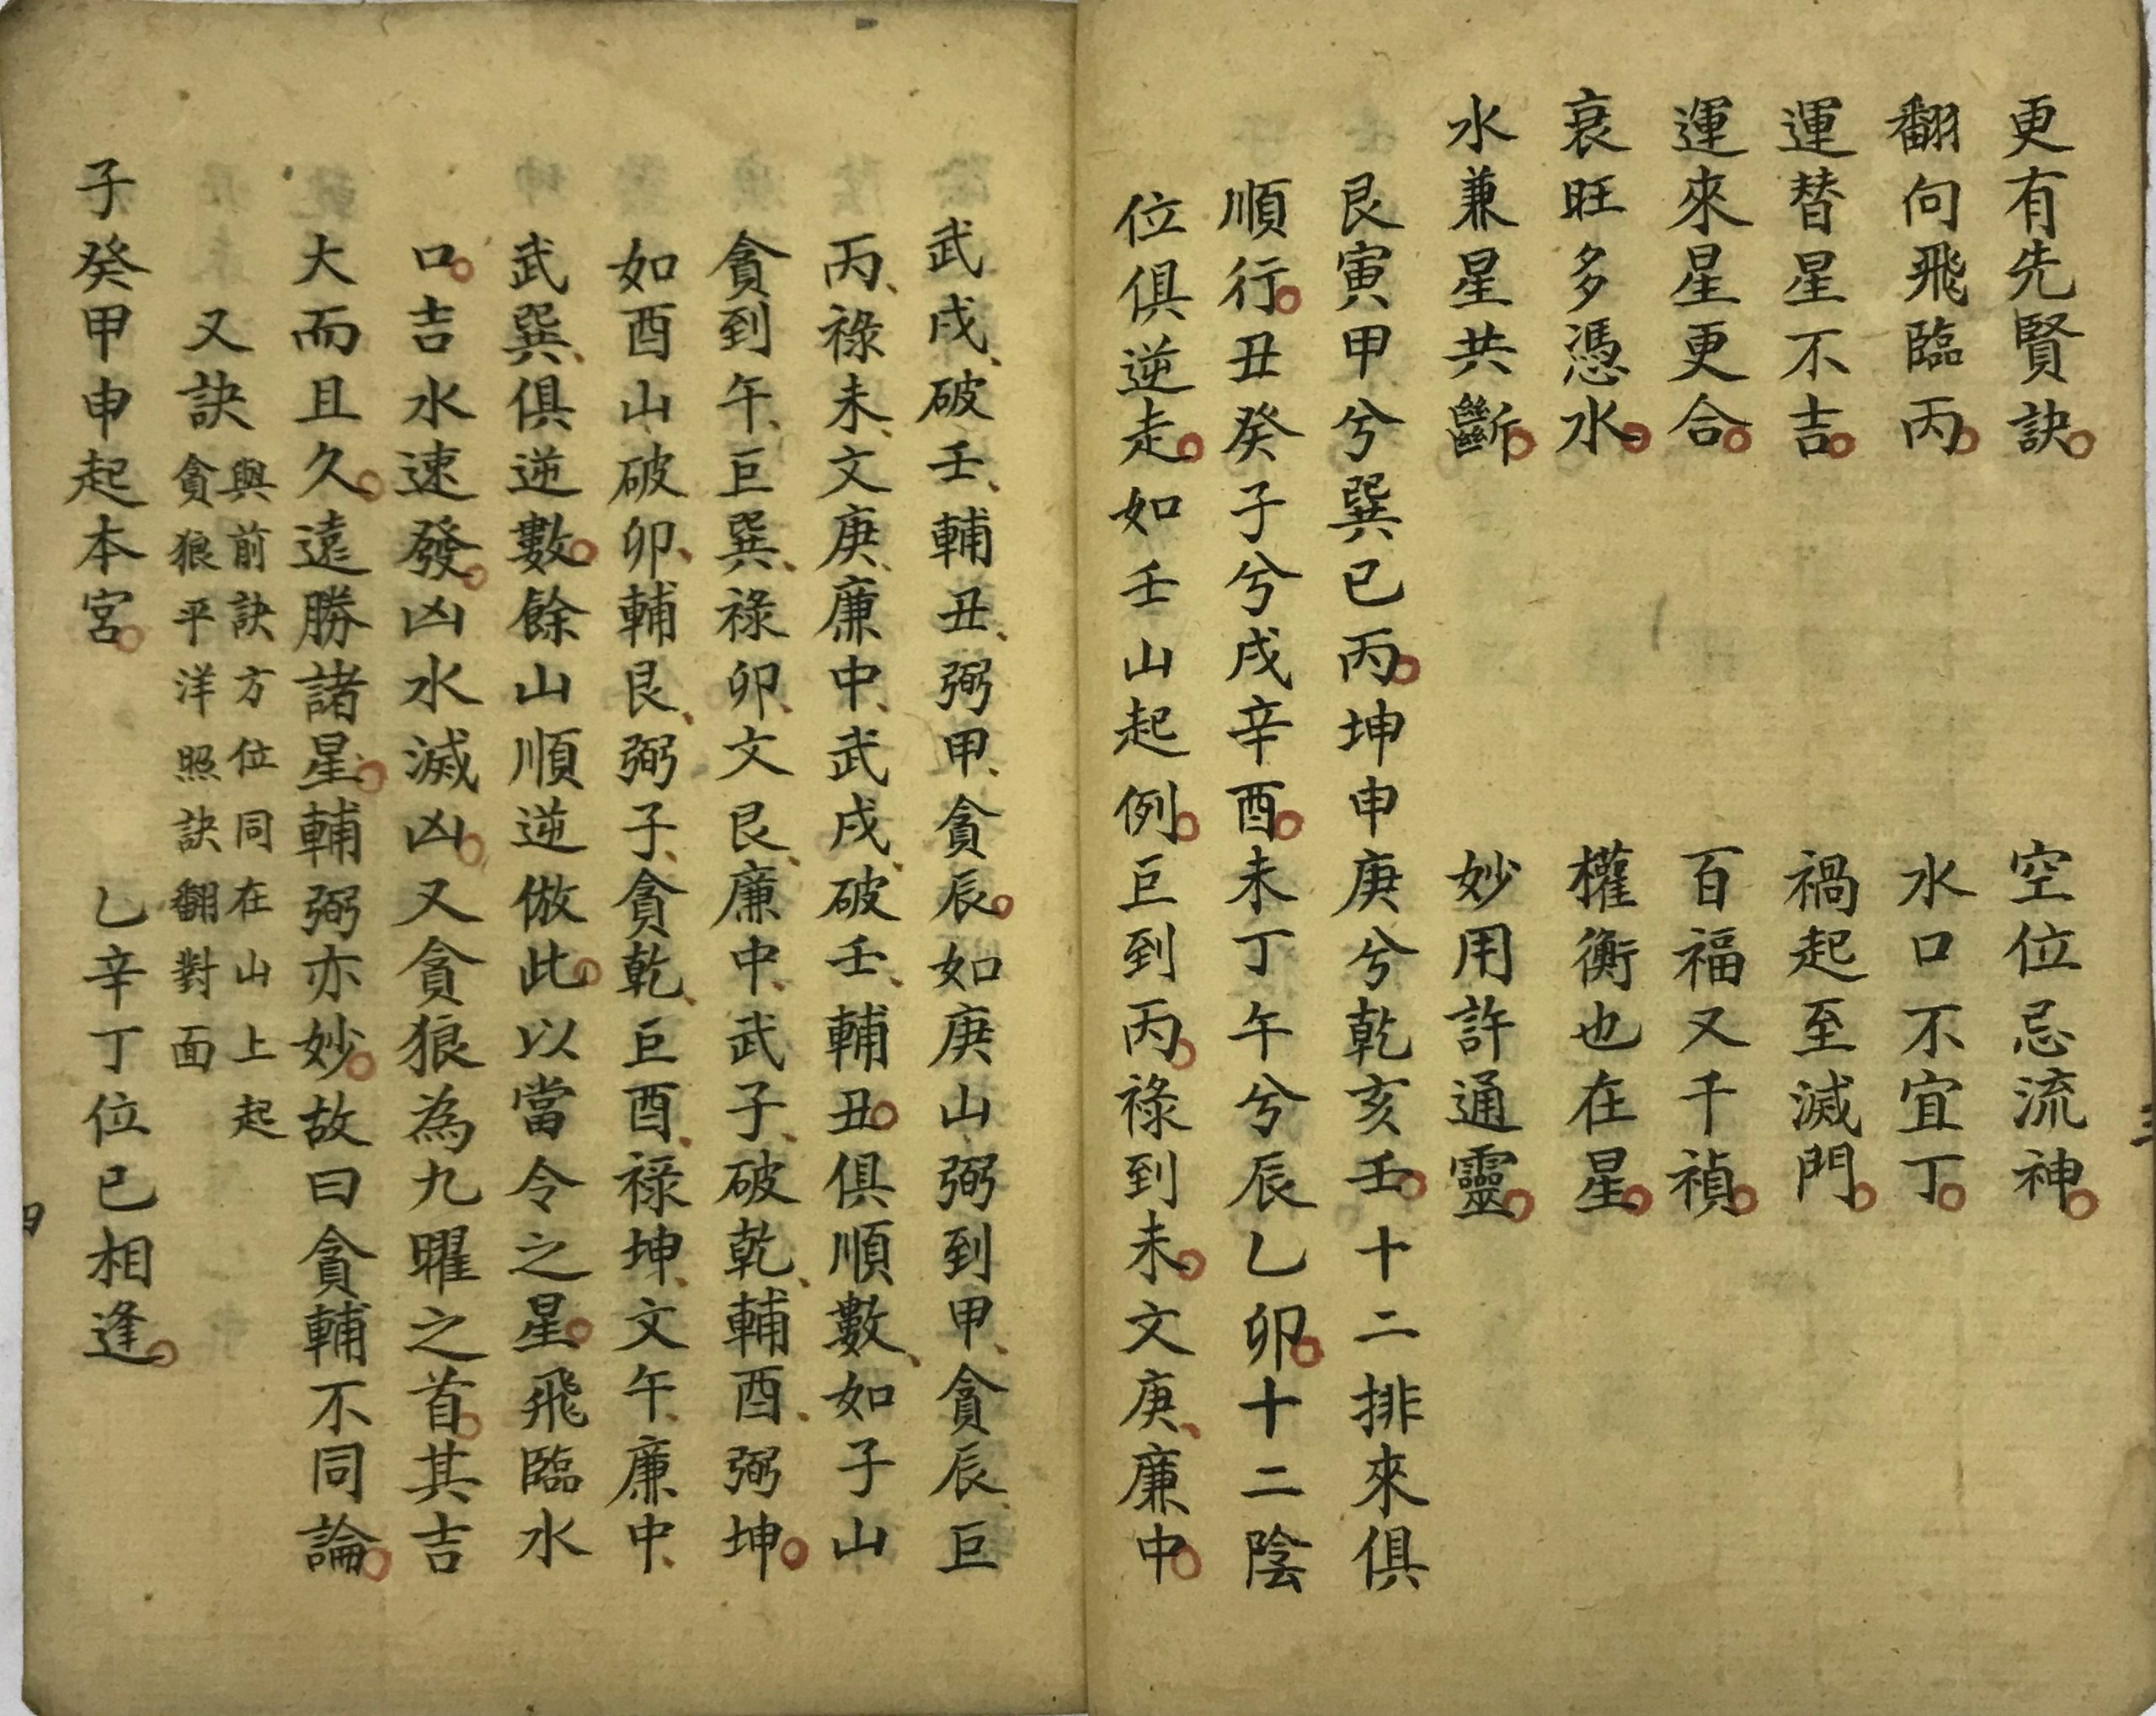 更有先賢訣　空位忌流神
翻向飛臨丙　水口不宜丁
運替星不吉　禍起至滅門
運來星更合　百福又千禎
衰旺多憑水　權衡也在星
水兼星共斷　妙用許通靈
艮寅甲兮巽巳丙坤申庚兮乾亥壬十二排來俱
順行丑癸子兮戌辛酉未丁午兮辰乙卯十二陰
位俱逆走如壬山起例巨到丙祿到未文庚廉中
武戌破壬輔丑弼甲貪辰如庚山弼到甲貪辰巨
丙祿未文庚廉中武戌破壬輔丑俱順數如子山
貪到午巨巽祿卯文艮廉中武子破乾輔酉弼坤
如酉山破卯輔艮弼子貪乾巨酉祿坤文午廉中
武巽俱逆數餘山順逆倣此以當令之星飛臨水
口吉水速發凶水滅凶又貪狼為九曜之首其吉
大而且久遠勝諸星輔弼亦妙故曰貪輔不同論
又訣
與前訣方位同在山上起
貪狼平洋照訣翻對面
子癸甲申起本宮　乙辛丁位已相逢